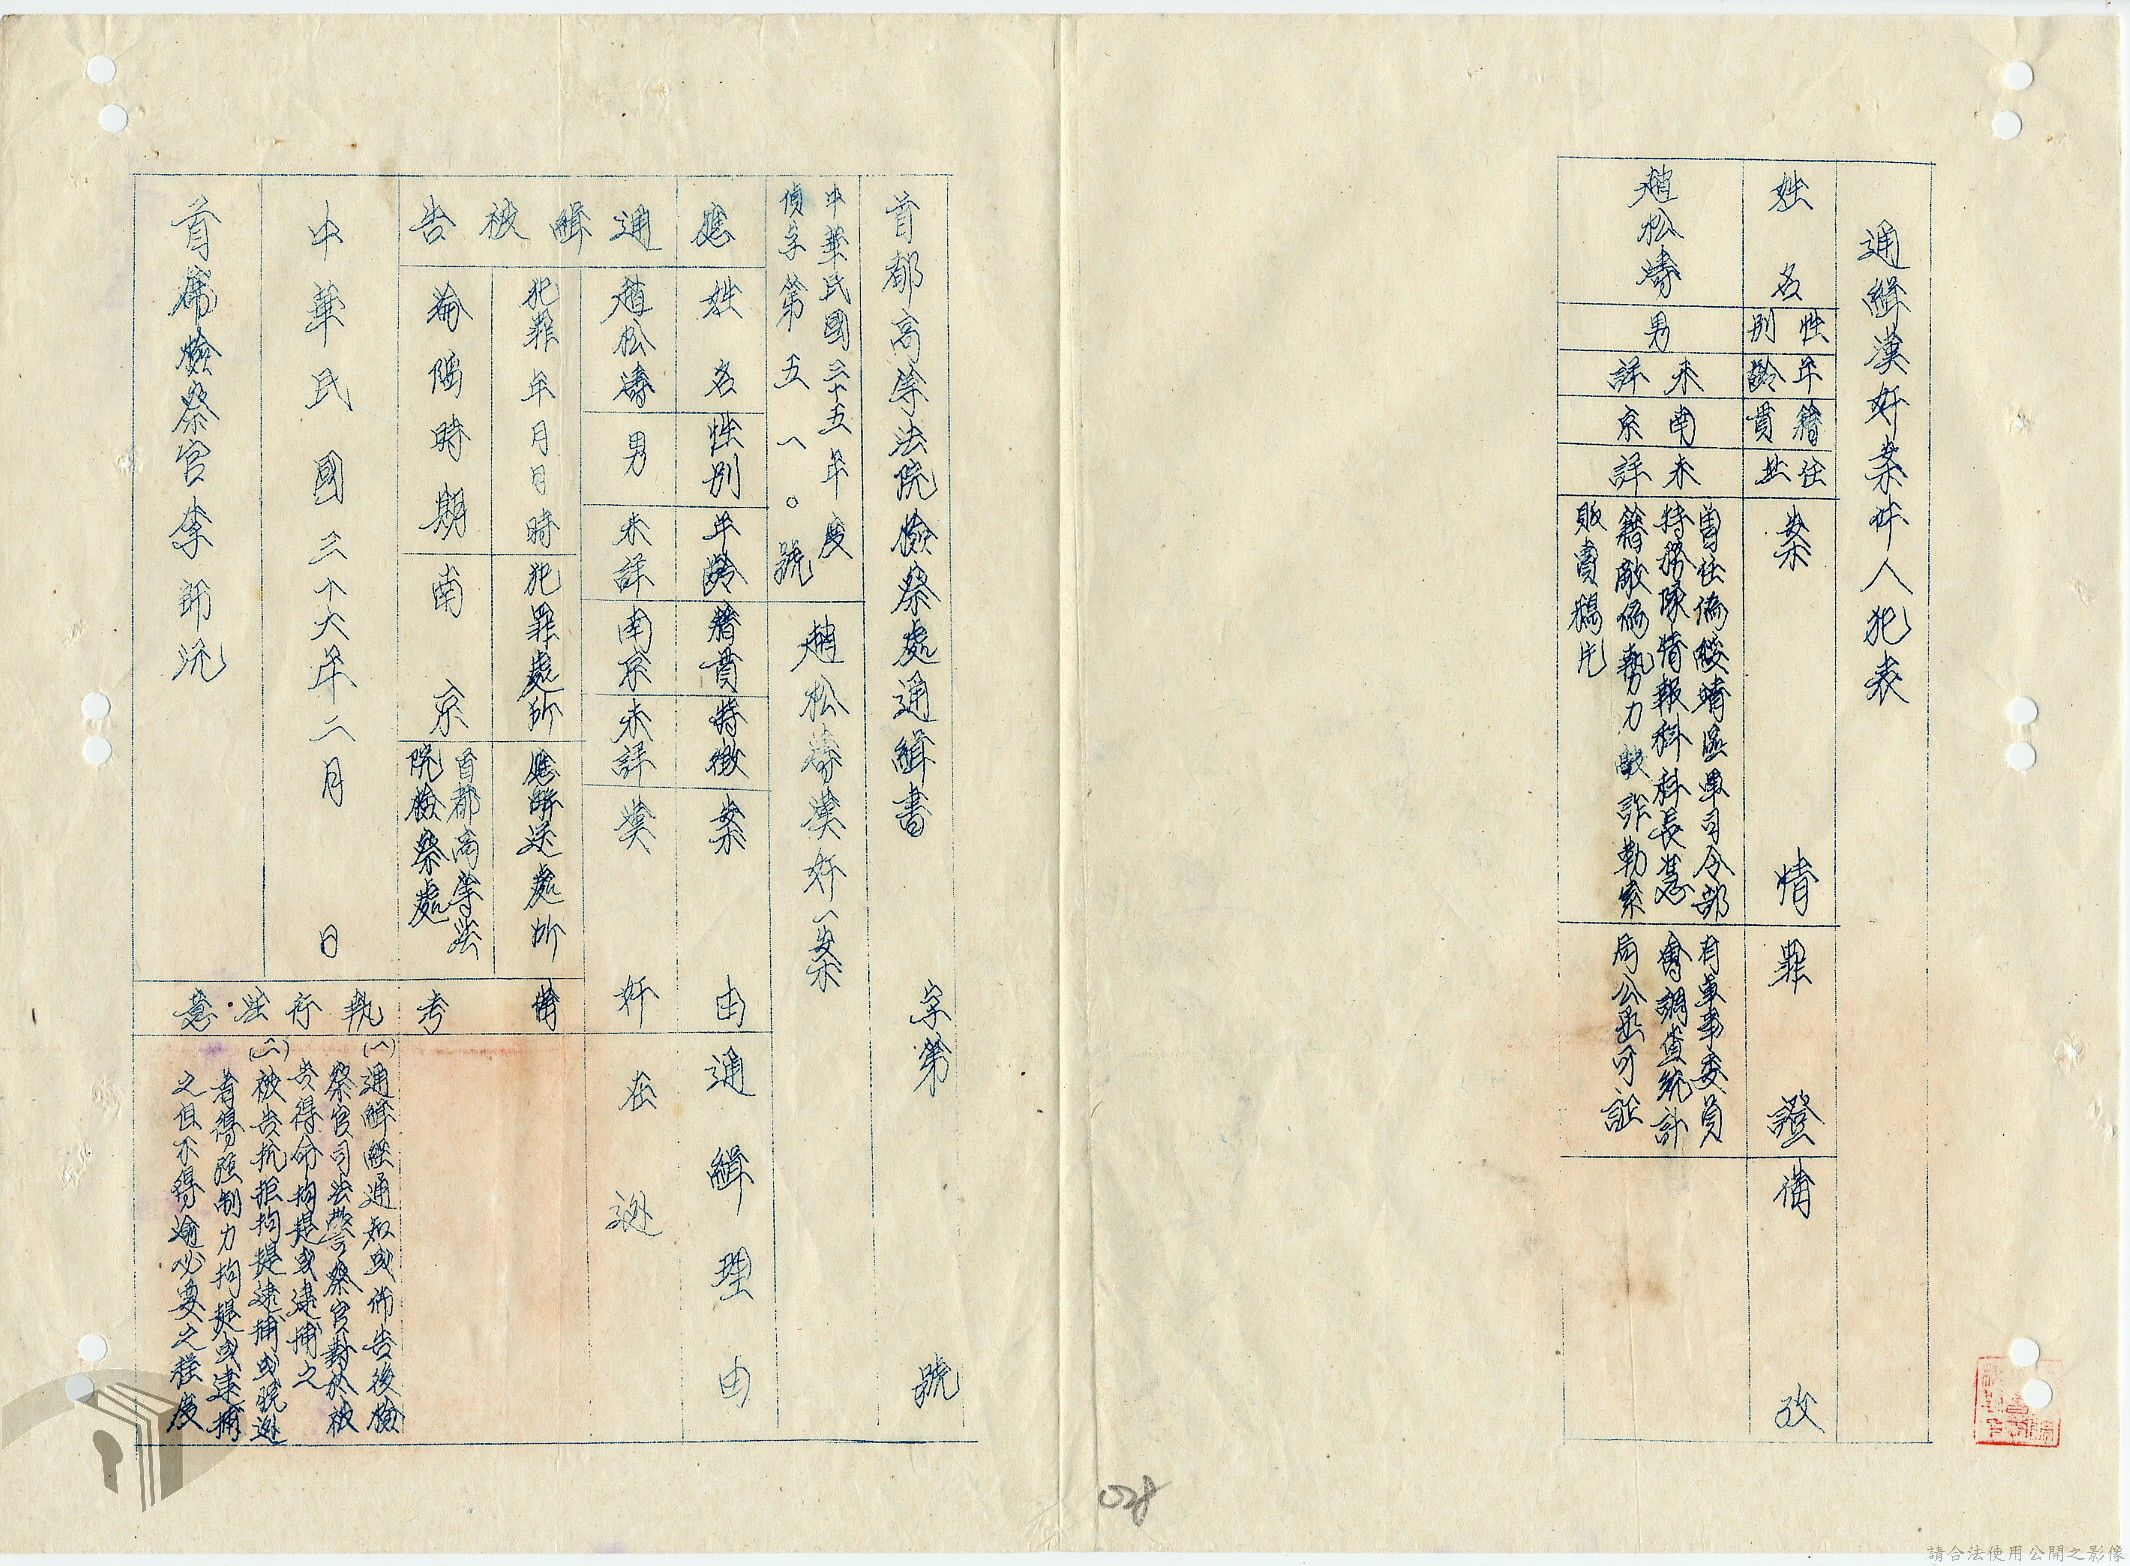 通緝漢奸案件人犯表
姓名
性別
年齡
籍貫
住址
案情
罪證
備攷
趙松濤
男
未詳
南京
未詳
曾任偽綏靖區軍司令部
特務隊情報科科長甚
藉敵偽勢力敲詐勒索
販賣鴉片
有軍事委員
會調查統計
局公函可証
首都高等法院檢察處通緝書
字第 號
中華民國三十五年度
偵字第五八〇號
趙松濤漢奸一案
應通緝被告
姓名
性別
年齡
籍貫
特徵
案由
通緝理由
趙松濤
男
未詳
南京
未詳
漢奸
在逃
犯罪年月日時
犯罪處所
應解送處所
備考
淪陷時期
南京
首都高等法
院檢察處
執行注意
(一)通緝經通知或佈告後檢
察官司法警察官對於被
告得命拘提或逮捕之
(二)被告抗拒拘提逮捕或脫逃
者得強制力拘提或逮捕
之但不得逾必要之程度
中華民國三十六年二月 日
首席檢察官李師沆
028
請合法使用公開之影像